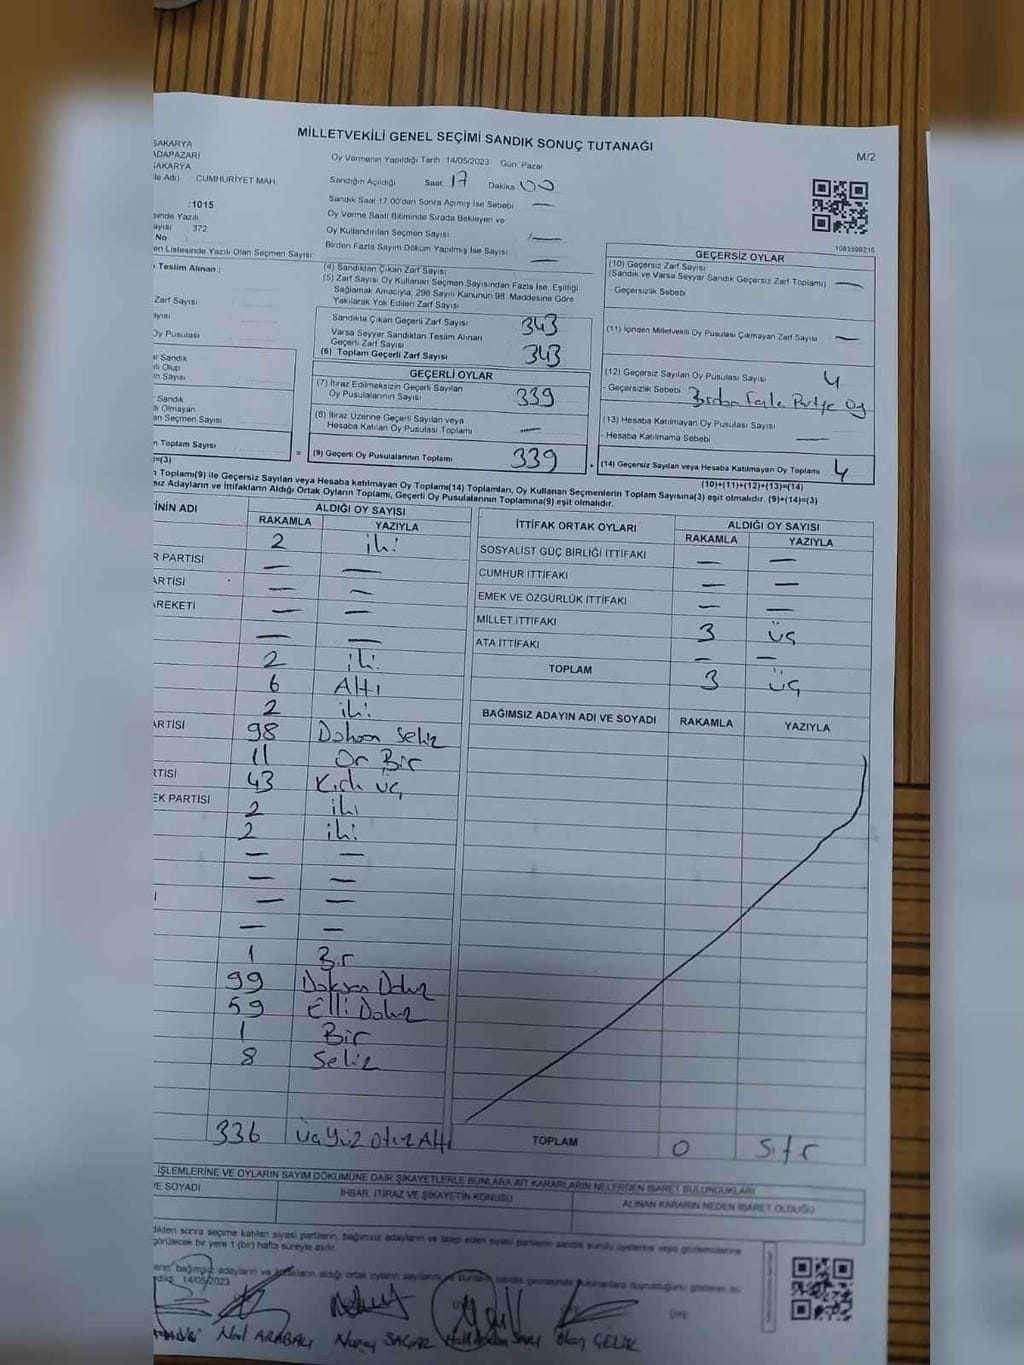 MİLLETVEKİLİ GENEL SEÇİMİ SANDIK SONUÇ TUTANAĞI
M/2
SAKARYA
ADAPAZARI
SAKARYA
CUMHURİYET MAH.
:1015
372
Oy Vermenin Yapıldığı Tarih 14/05/2023 Gün Pazar
Sandığın Açıldığı Saat 17 Dakika 00
Sandık Saat 17:00'den Sonra Açımış İse Sebebi —
Oy Verme Saati Bitiminde Sırada Bekleyen ve
Oy Kullandırılan Seçmen Sayısı —
Birden Fazla Sayım Döküm Yapılmış İse Sayısı —
en Listesinde Yazılı Olan Seçmen Sayısı:
Teslim Alınan :
Zarf Sayısı
Oy Pusulası
(4) Sandıktan Çıkan Zarf Sayısı
(5) Zarf Sayısı Oy Kullanan Seçmen Sayısından Fazla İse, Eşitliği
Sağlamak Amacıyla, 298 Sayılı Kanunun 98. Maddesine Göre
Yakılarak Yok Edilen Zarf Sayısı
Sandıkta Çıkan Geçerli Zarf Sayısı 343
Varsa Seyyar Sandıktan Teslim Alınan
Geçerli Zarf Sayısı
(6) Toplam Geçerli Zarf Sayısı 343
GEÇERLİ OYLAR
(7) İtiraz Edilmeksizin Geçerli Sayılan
Oy Pusulalarının Sayısı 339
(8) İtiraz Üzerine Geçerli Sayılan veya
Hesaba Katılan Oy Pusulası Toplamı —
(9) Geçerli Oy Pusulalarının Toplamı 339
1081599216
GEÇERSİZ OYLAR
(10) Geçersiz Zarf Sayısı
(Sandık ve Varsa Seyyar Sandık Geçersiz Zarf Toplamı) —
- Geçersizlik Sebebi
(11) İçinden Milletvekili Oy Pusulası Çıkmayan Zarf Sayısı —
(12) Geçersiz Sayılan Oy Pusulası Sayısı 4
- Geçersizlik Sebebi Birden Fazla Partiye Oy
(13) Hesaba Katılmayan Oy Pusulası Sayısı
- Hesaba Katılmama Sebebi —
(14) Geçersiz Sayılan veya Hesaba Katılmayan Oy Toplamı 4
(10)+(11)+(12)+(13)=(14)
n Toplam Sayısı
Toplamı(9) ile Geçersiz Sayılan veya Hesaba katılmayan Oy Toplamı(14) Toplamları, Oy Kullanan Seçmenlerin Toplam Sayısına(3) eşit olmalıdır. (9)+(14)=(3)
Adayların ve İttifakların Aldığı Ortak Oyların Toplamı, Geçerli Oy Pusulalarının Toplamına(9) eşit olmalıdır.
ADI ALDIĞI OY SAYISI
RAKAMLA YAZIYLA
2 iki
R PARTİSİ — —
ARTİSİ — —
AREKETİ — —
— —
2 iki
6 Altı
2 iki
ARTİSİ 98 Doksan Sekiz
11 On Bir
RTİSİ 43 Kırk üç
EK PARTİSİ 2 iki
2 iki
— —
— —
— —
— —
1 Bir
99 Doksan Dokuz
59 Elli Dokuz
1 Bir
8 Sekiz
336 üçyüz otuz Altı
İTTİFAK ORTAK OYLARI ALDIĞI OY SAYISI
RAKAMLA YAZIYLA
SOSYALİST GÜÇ BİRLİĞİ İTTİFAKI — —
CUMHUR İTTİFAKI — —
EMEK VE ÖZGÜRLÜK İTTİFAKI — —
MİLLET İTTİFAKI 3 üç
ATA İTTİFAKI — —
TOPLAM 3 üç
BAĞIMSIZ ADAYIN ADI VE SOYADI RAKAMLA YAZIYLA
TOPLAM 0 Sıfır
İŞLEMLERİNE VE OYLARIN SAYIM DÖKÜMÜNE DAİR ŞİKAYETLERLE BUNLARA AİT KARARLARIN NELERDEN İBARET BULUNDUKLARI
VE SOYADI İHBAR, İTİRAZ VE ŞİKAYETİN KONUSU ALINAN KARARIN NEDEN İBARET OLDUĞU
dikten sonra seçime katılan siyasi partilerin, bağımsız adayların ve talep eden siyasi partilerin sandık kurulu üyelerine veya gözlemcilerine
görülecek bir yere 1 (bir) hafta süreyle asılır.
14/05/2023
ÜYE
ARABACI Nuray SAÇAR ÇELİK